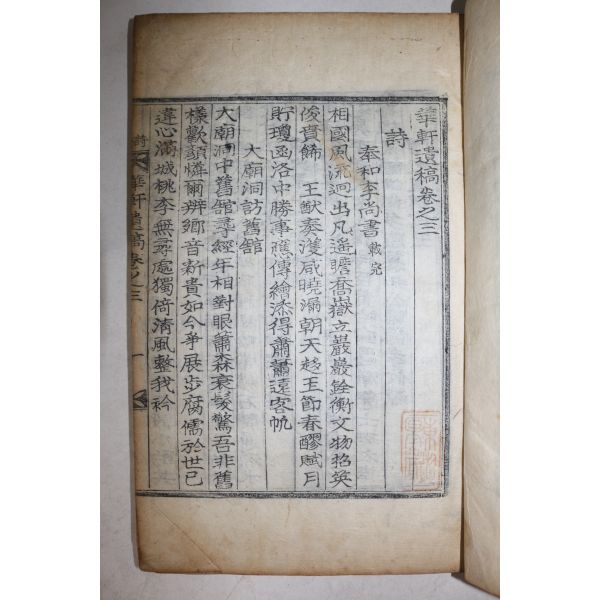 華軒遺稿卷之三
詩
奉和李尚書 載完
相國風流迥出凡遙瞻喬嶽立巖巖銓衡文物招英
俊賁餙 王猷奏濩咸曉漏朝天趍玉節春醪賦月
貯瓊函洛中勝事應傳繪添得蕭蕭遠客帆
大廟洞訪舊舘
大廟洞中舊舘尋經年相對眼蕭森衰髮驚吾非舊
樣歡顏憐爾辨鄉音新貴如今爭展步腐儒於世已
違心滿城桃李無尋處獨倚清風整我衿
詩 華軒遺稿卷之三 一